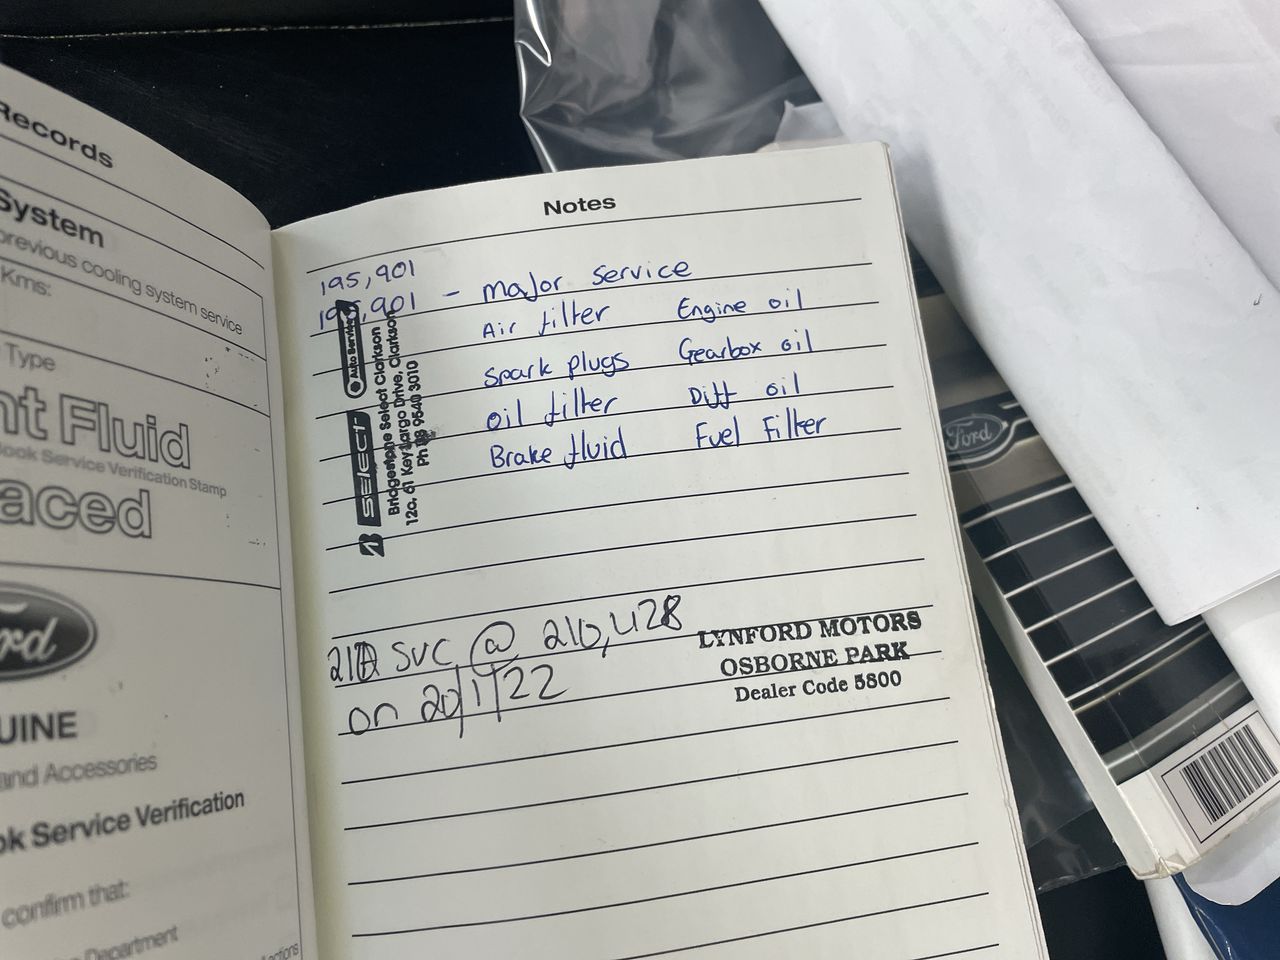 Records
System
previous cooling system service
Kms:
Type
nt Fluid
ook Service Verification Stamp
aced
UINE
and Accessories
ok Service Verification
confirm that:
Department
Notes
195,901
195,901 - Major service
Air filter Engine oil
Spark plugs Gearbox oil
oil filter Diff oil
Brake fluid Fuel Filter
SELECT Auto Service
Bridgestone Select Clarkson
12c, 61 Key Largo Drive, Clarkson
Ph 08 9540 3010
SVC @ 210,428
on 20/1/22
LYNFORD MOTORS
OSBORNE PARK
Dealer Code 5800
Ford